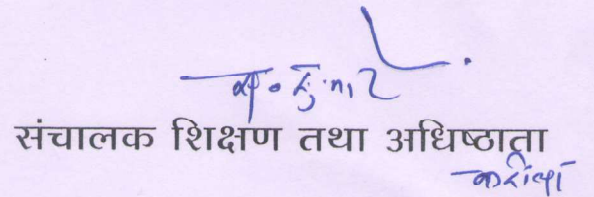 संचालक शिक्षण तथा अधिष्ठाता
करीता